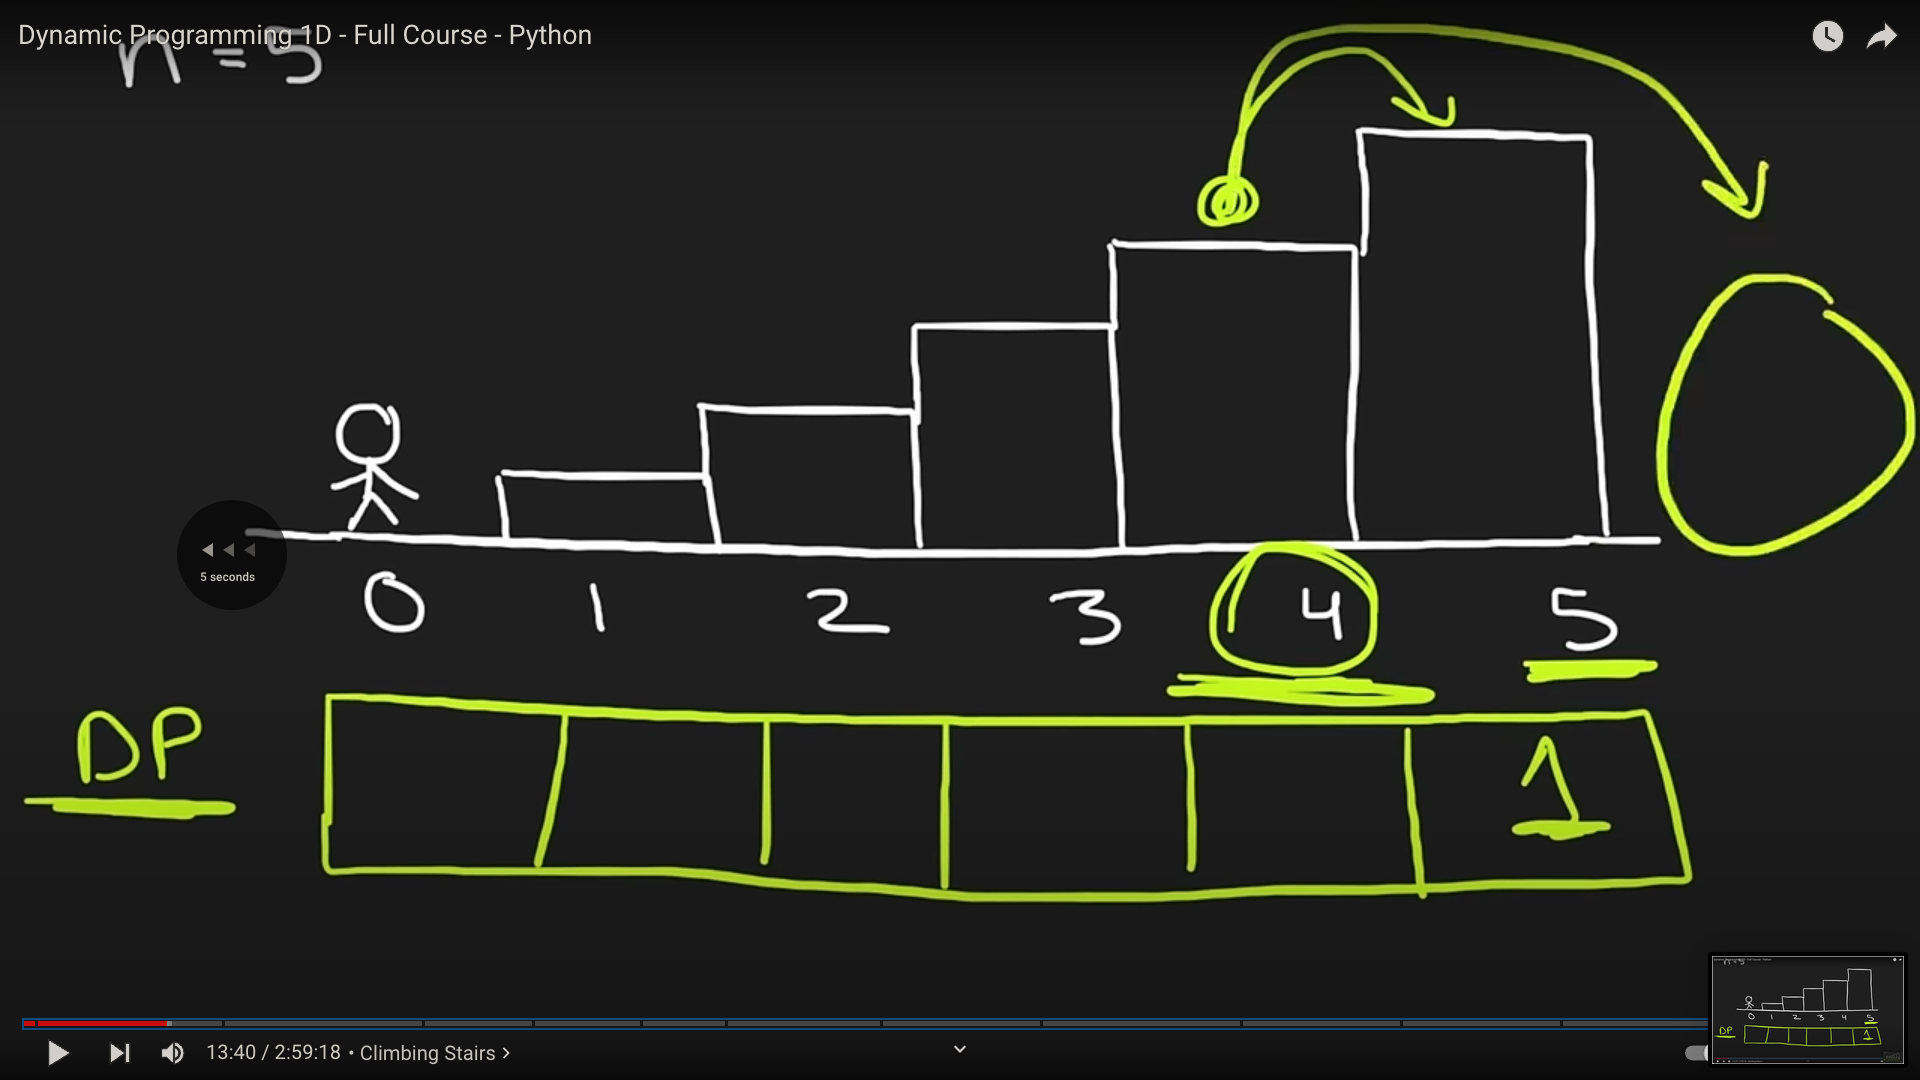 Dynamic Programming 1D - Full Course - Python
n = 5
5 seconds
0 1 2 3 4 5
DP
1
13:40 / 2:59:18 • Climbing Stairs >
n=5
0 1 2 3 4 5
DP
1